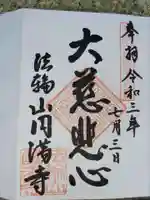 奉拝 令和三年
七月三日
大慈悲心
法輪山円満寺